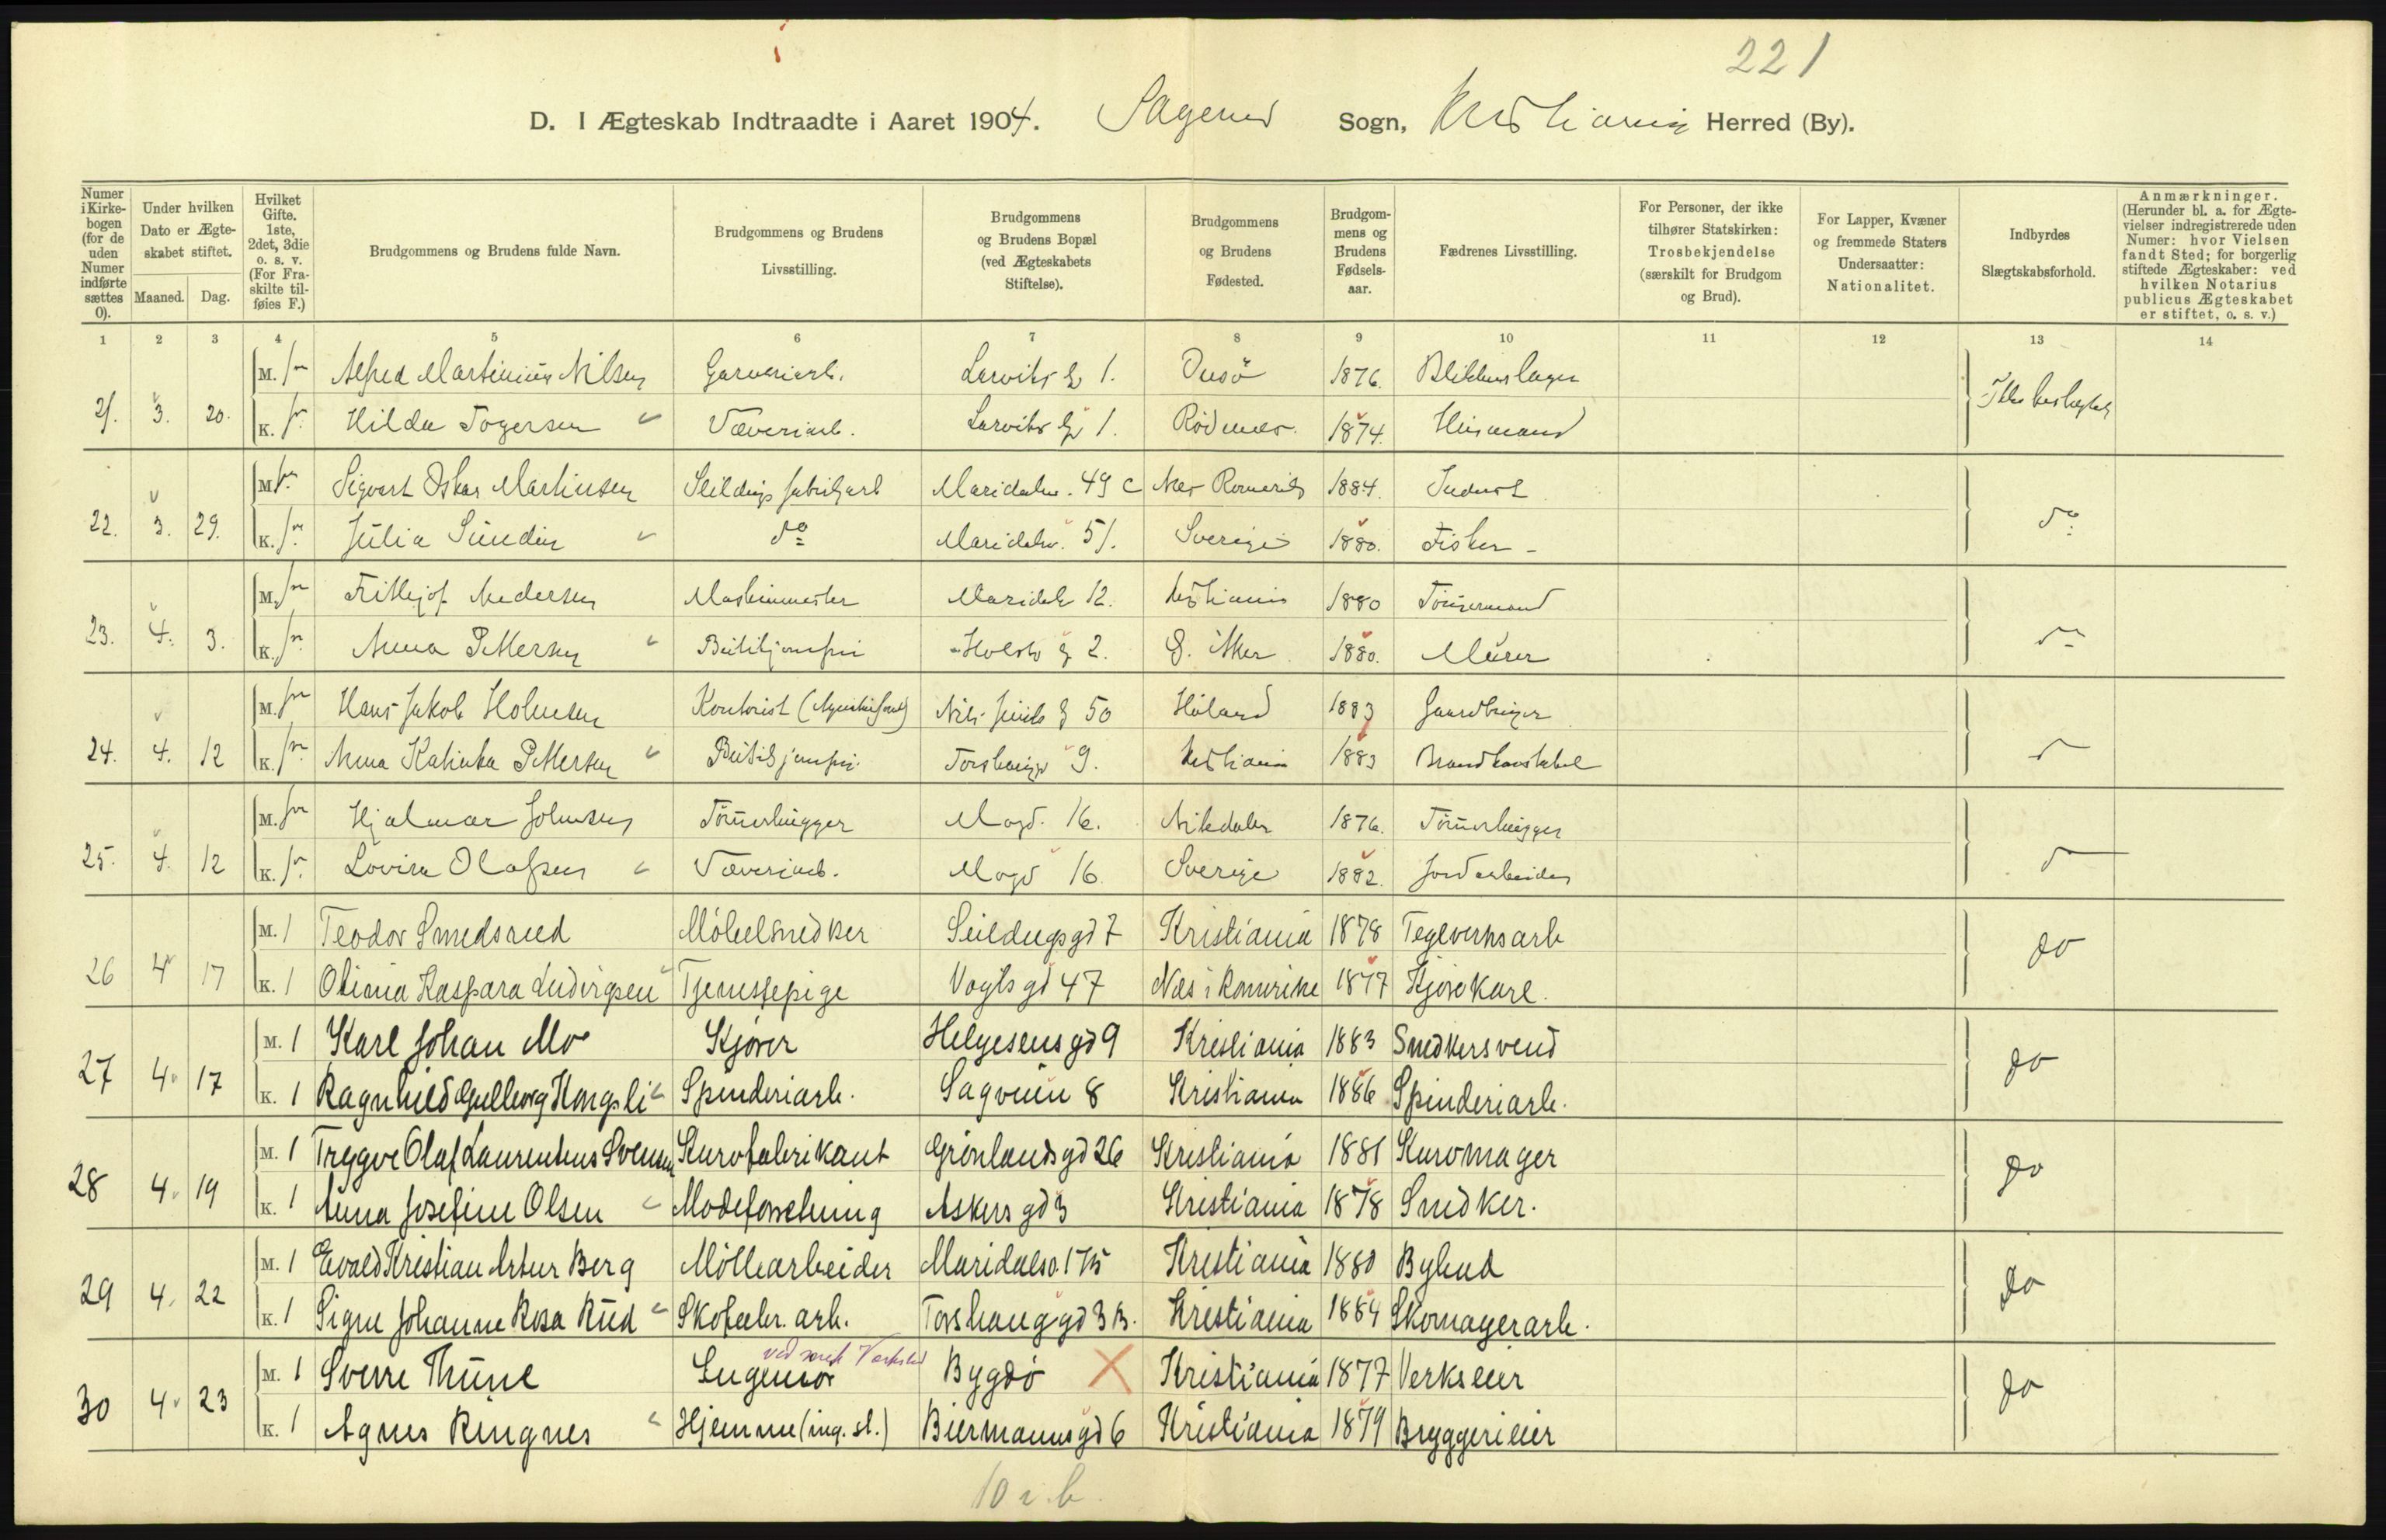 221
D. I Ægteskab Indtraadte i Aaret 1904. Sagenes Sogn, Kristiania Herred (By).
Numer i Kirkebogen (for de uden Numer indførte sættes 0).
Under hvilken Dato er Ægteskabet stiftet.
Maaned. Dag.
Hvilket Gifte. 1ste, 2det, 3die o. s. v. (For Fraskilte tilføies F.)
Brudgommens og Brudens fulde Navn.
Brudgommens og Brudens Livsstilling.
Brudgommens og Brudens Bopæl (ved Ægteskabets Stiftelse).
Brudgommens og Brudens Fødested.
Brudgommens og Brudens Fødselsaar.
Fædrenes Livsstilling.
For Personer, der ikke tilhører Statskirken: Trosbekjendelse (særskilt for Brudgom og Brud).
For Lapper, Kvæner og fremmede Staters Undersaatter: Nationalitet.
Indbyrdes Slægtskabsforhold.
Anmærkninger. (Herunder bl. a. for Ægtevielser indregistrerede uden Numer: hvor Vielsen fandt Sted; for borgerlig stiftede Ægteskaber: ved hvilken Notarius publicus Ægteskabet er stiftet, o. s. v.)
1 2 3 4 5 6 7 8 9 10 11 12 13 14
M. Alfred Martinius Nilsen Garveriarb. Larviks g 1. 1876. Blikkenslager
21. 3. 20. K. Hilda Togersen Væveriarb. Larviks g 1. Rødenes 1874. Husmand
M. Sigvart Oskar Martinsen Seildugs fabrikarb Maridalsv. 49 c Nes Romerike 1884. Inderst
22. 3. 29. K. Julia Sundin do Maridalsv. 51. Sverige 1880. Fisker
M. Fritjof Andersen Maskinmester Maridalv 12. Kristiania 1880 Tømmermand
23. 4. 3. K. Anna Pettersen Butikjomfru Holsts g 2. Ø. Aker 1880. Murer do
M. Hans Jakob Holmsen Kontorist Nils Juels g 50 Høland 1883 Gaardbruger
24. 4. 12 K. Anna Katinka Pettersen Butikjomfru Torshauggd 9. Kristiania 1883 Brandkonstabel
M. Hjalmar Johnsen Tømmerhugger Magd. 16. Nitedalen 1876. Tømmerhugger
25. 4. 12 K. Lovisa Olafsen Væveriarb. Magd 16 Sverige 1882. Jordarbeider
M. 1 Teodor Smedsrud Møbelsnedker Seildugsgd 7 Kristiania 1878 Teglverksarb
26 4 17 K. 1 Olivia Kaspara Ludvigsen Tjenestepige Vogtsgd 47 Næs i Romerike 1877 Kjørekarl. do
M. 1 Karl Johan Mo Kjører Helgesensgd 9 Kristiania 1883 Snedkersvend
27 4. 17 K. 1 Ragnhild Gulborg Kongsli Spinderiarb. Sagveien 8 Kristiania 1886 Spinderiarb. do
M. 1 Trygve Olaf Laurentius Svensen Kurvfabrikant Grønlandsgd 26 Kristiania 1881 Kurvmager
28 4. 19 K. 1 Anna Josefine Olsen Modeforretning Askersgd 3 Kristiania 1878 Snedker. do
M. 1 Evald Kristian Artur Berg Møllearbeider Maridalsv. 175 Kristiania 1880 Bybud
29 4. 22 K. 1 Signe Johanne Rosa Rud Skofabr. arb. Torshauggd 3 B. Kristiania 1884 Skomagerarb. do
M. 1 Sverre Thune Ingeniør Bygdø X Kristiania 1877 Verkseier
30 4. 23 K. 1 Agnes Ringnes Hjemme (ing. st.) Biermannsgd 6 Kristiania 1879 Bryggerieier do